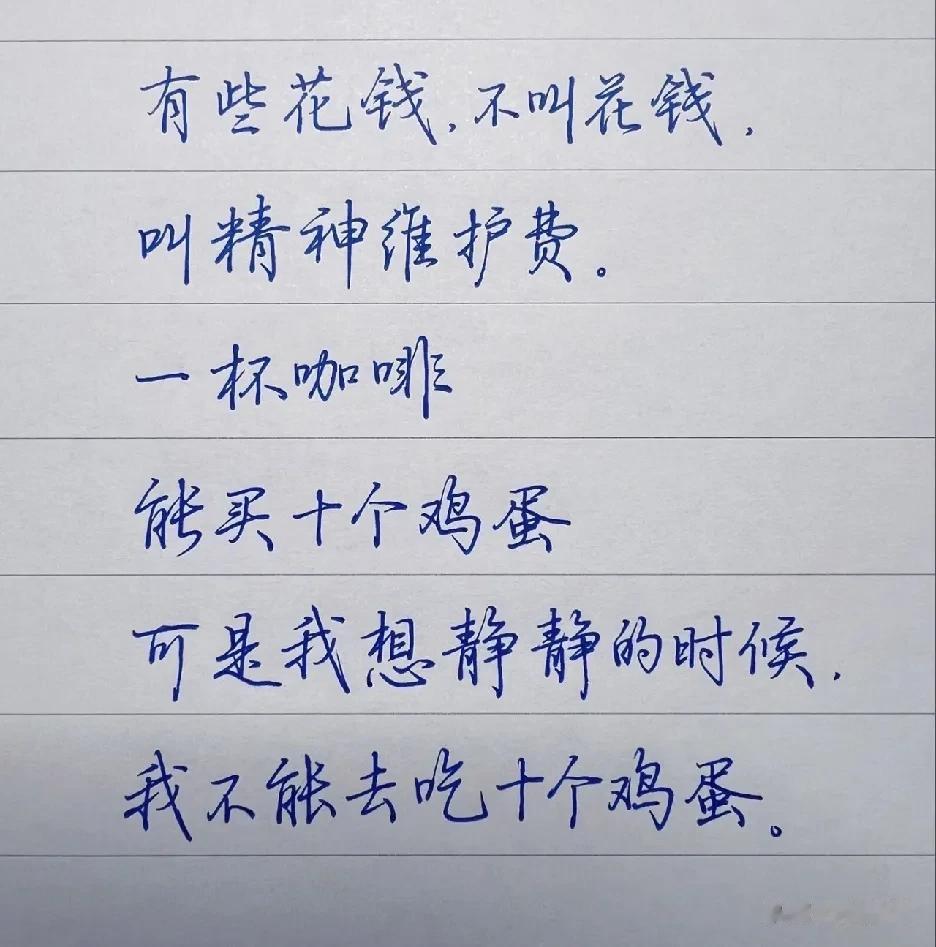 有些花钱,不叫花钱,
叫精神维护费。
一杯咖啡
能买十个鸡蛋
可是我想静静的时候,
我不能去吃十个鸡蛋。